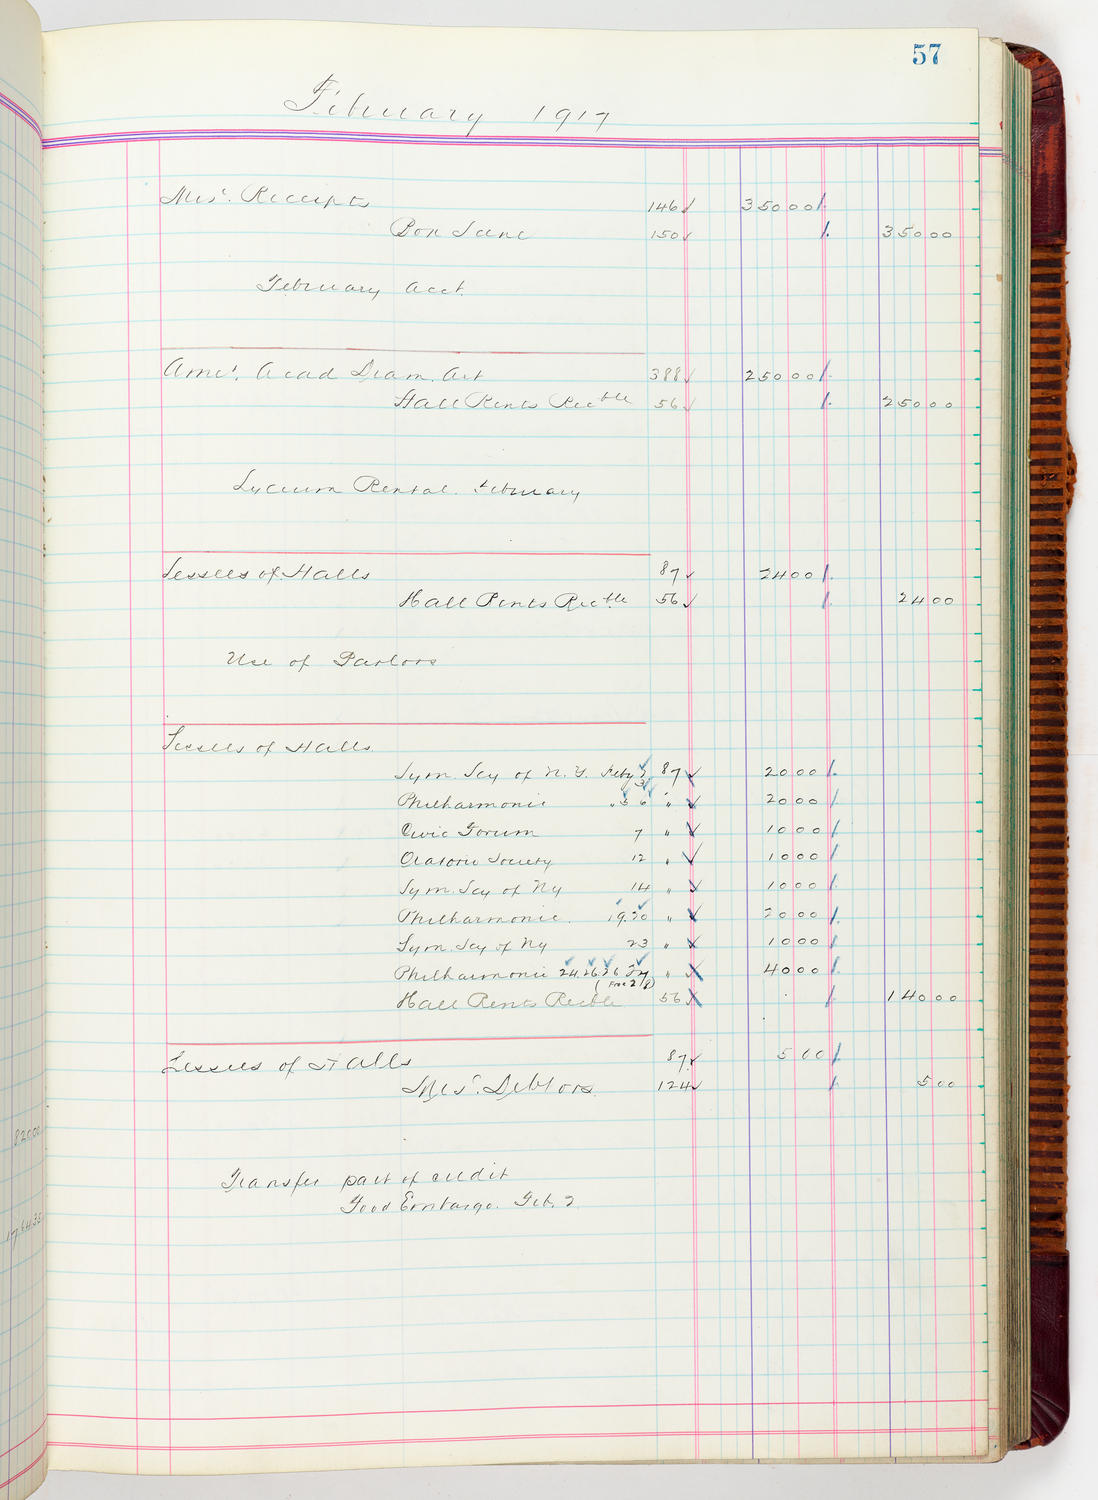 57
February 1917
Misc. Receipts 146 ✓ 350 00
150 ✓ 350 00
February acct.
Amc. Acad Dram. Art 388 ✓ 250 00
Hall Rents Recble 56 ✓ 250 00
Lyceum Rental. February
Lessees of Halls 87 ✓ 24 00
Hall Rents Recble 56 ✓ 24 00
Use of Parlors
Lessees of Halls
Sym. Scy of N.Y. Feby 87 ✓ 20 00
Philharmonic " 5 6 " ✓ 20 00
Civic Forum 7 " ✓ 10 00
Oratorio Society 12 " ✓ 10 00
Sym. Scy of Ny 14 " ✓ 10 00
Philharmonic. 19. 20 " ✓ 20 00
Sym. Scy of Ny 23 " ✓ 10 00
Philharmonic 24. 26. 26 27 " ✓ 40 00
(From 2/8)
Hall Rents Recble 56 ✓ 140 00
Lessees of Halls 87 ✓ 5 00
Misc. Debtors 124 ✓ 5 00
820 00
Transfer part of credit
Food Embargo. Feb. 2